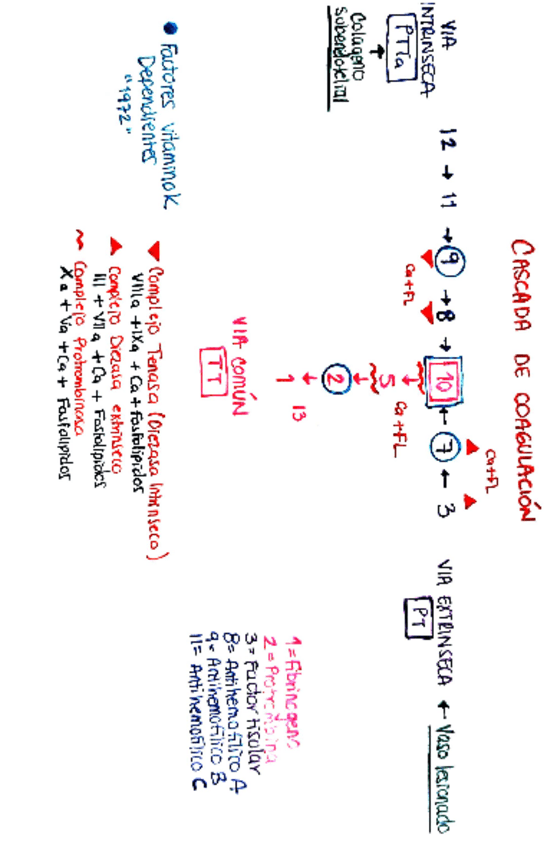 CASCADA DE COAGULACIÓN
VIA
INTRINSECA
PTTa
↑
Colageno
subendotelial
12 → 11 → 9 → 8 → 10 ← 7 ← 3
Ca+FL
Ca+FL
VIA EXTRINSECA ← Vaso lesionado
PT
5 Ca+FL
2
13
1
VIA COMÚN
TT
• Factores vitamina K
Dependientes
"1972"
▼ Complejo Tenasa (Diezasa Intrinseco)
VIIIa + IXa + Ca + Fosfolipidos
▲ Complejo Diezasa extrinseco
III + VIIa + Ca + Fosfolipidos
~ Complejo Protrombinasa
Xa + Va + Ca + Fosfolipidos
1= Fibrinogeno
2= Protrombina
3= Factor tisular
8= Antihemofilico A
9= Antihemofilico B
11= Antihemofilico C